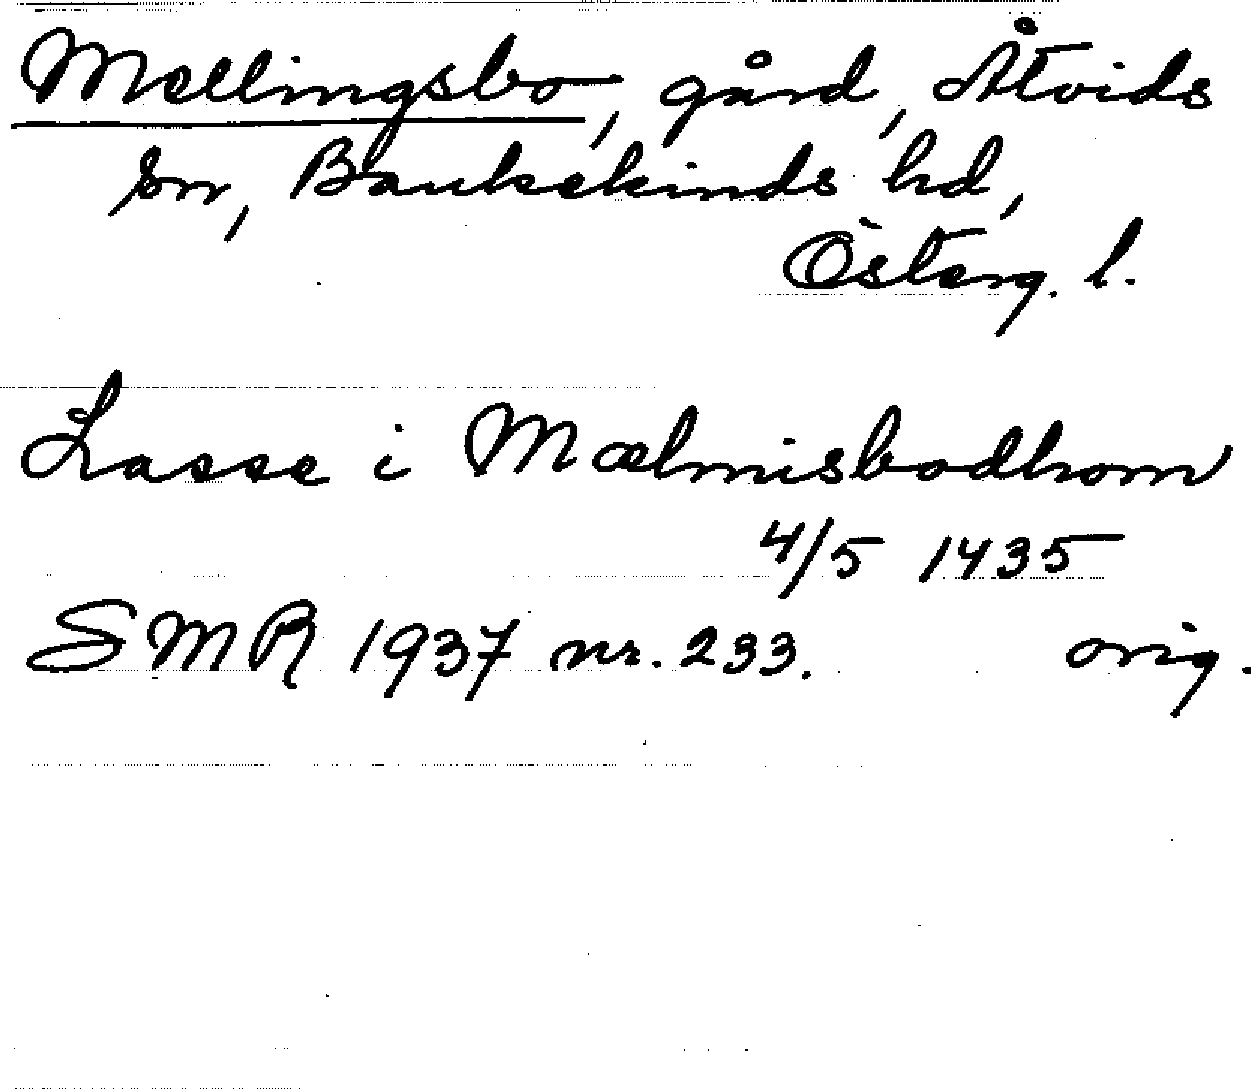 Mellingsbo, gård, Åtvids
sn, Bankekinds hd,
Österg. l.
Lasse i Mælmisbodhom
4/5 1435
SMR 1937 nr. 233. orig.